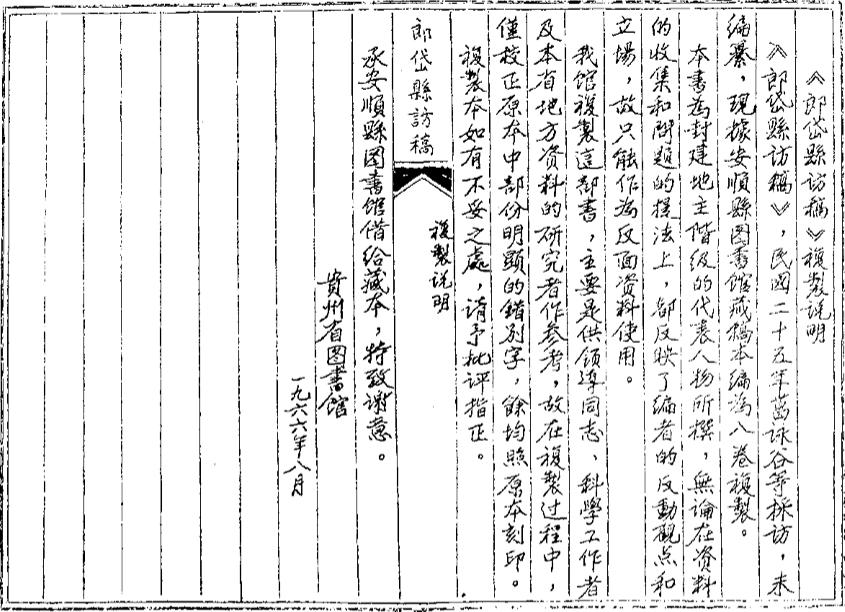 《郎岱縣訪稿》複製说明
《郎岱縣訪稿》，民國二十五年葛詠谷等採访，未
编纂，現據安順縣図書館藏稿本编為八卷複製。
本書為封建地主階级的代表人物所撰，無論在资料
的收集和问题的提法上，都反映了编者的反動觀点和
立場，故只能作為反面资料使用。
我馆複製這部書，主要是供领導同志、科學工作者
及本省地方资料的研究者作参考，故在複製过程中，
僅校正原本中部份明顯的錯别字，餘均照原本刻印。
複製本如有不妥之處，请予批评指正。
郎岱縣訪稿
複製说明
承安順縣図書館借给藏本，特致谢意。
貴州省図書馆
一九六六年八月